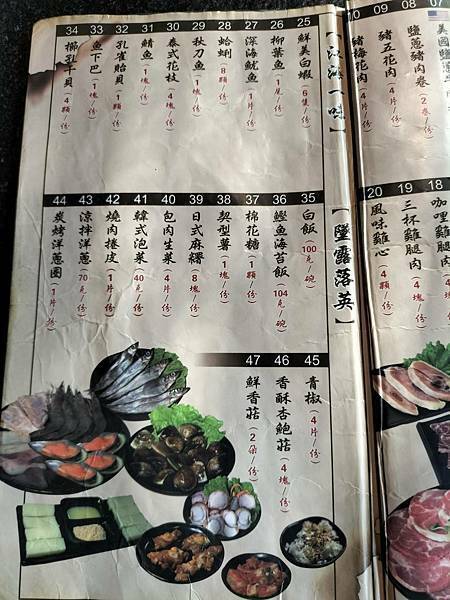 10
豬梅花肉(4片/份)
09
豬五花肉(4片/份)
08
鹽蔥豬肉卷(2卷/份)
07
20
風味雞心(4顆/份)
19
三杯雞腿肉(4塊/份)
18
咖哩雞腿肉(4塊/份)
【江海一味】
25
鮮美白蝦(6隻/份)
26
柳葉魚(1尾/份)
27
深海魷魚(1片/份)
28
蛤蜊(8顆/份)
29
秋刀魚(1塊/份)
30
泰式花枝(4塊/份)
31
鯖魚(1塊/份)
32
孔雀貽貝(1顆/份)
33
魚下巴(1塊/份)
34
櫛孔干貝(4顆/份)
【墜露落英】
35
白飯(100克/碗)
36
鰹魚海苔飯(104克/碗)
37
棉花糖(1顆/份)
38
契型薯(1塊/份)
39
日式麻糬(8塊/份)
40
包肉生菜(4片/份)
41
韓式泡菜(40克/份)
42
燒肉捲皮(1片/份)
43
涼拌洋蔥(70克/份)
44
炭烤洋蔥圈(1片/份)
45
青椒(4片/份)
46
香酥杏鮑菇(4塊/份)
47
鮮香菇(2朵/份)